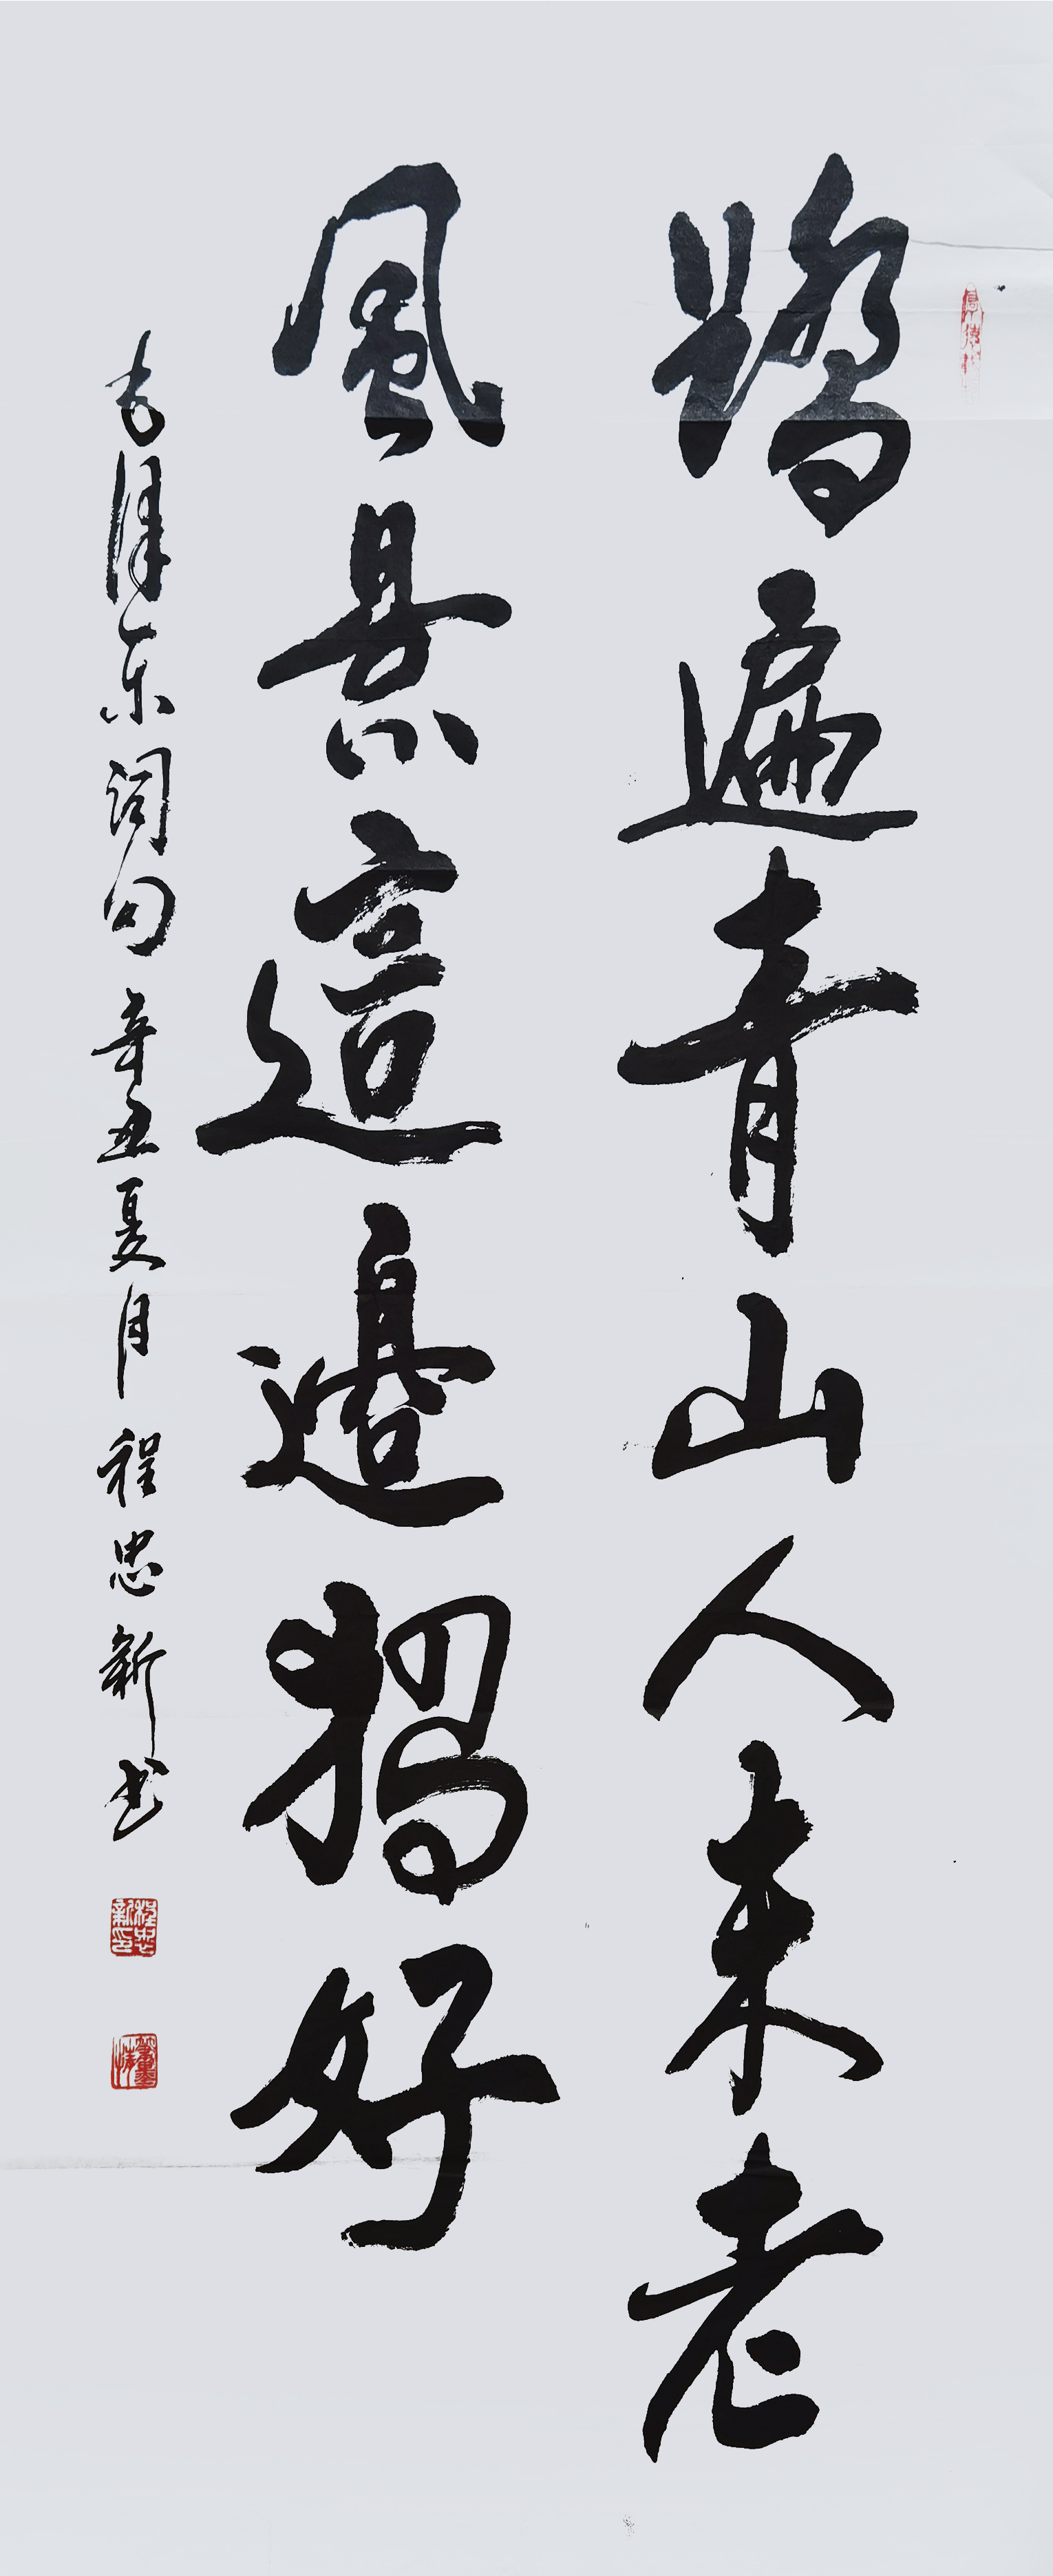 踏遍青山人未老
風景這邊獨好
毛泽东词句 辛丑夏月 程忠新书
程忠新印